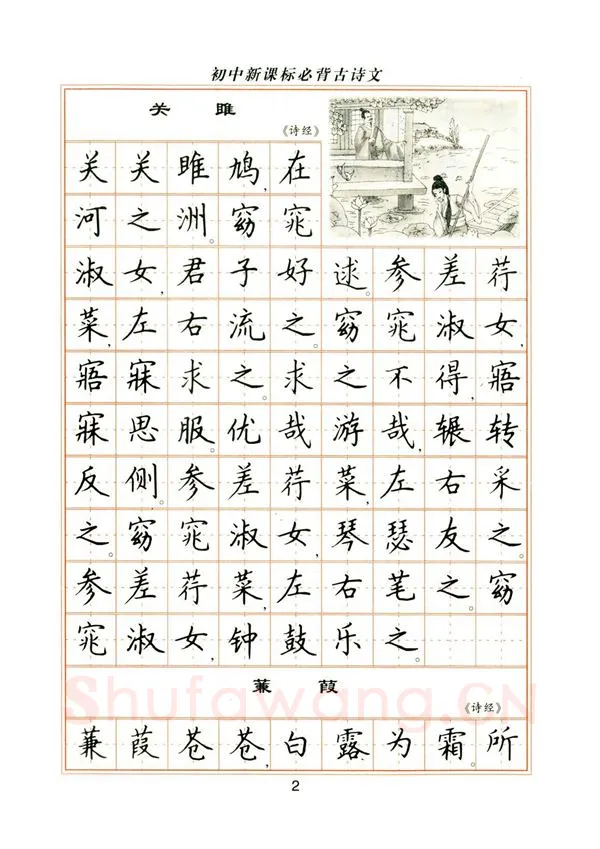 初中新课标必背古诗文
关 雎
《诗经》
关关雎鸠,在
河之洲。窈窕
淑女,君子好逑。参差荇
菜,左右流之。窈窕淑女,
寤寐求之。求之不得,寤
寐思服。优哉游哉,辗转
反侧。参差荇菜,左右采
之。窈窕淑女,琴瑟友之。
参差荇菜,左右芼之。窈
窕淑女,钟鼓乐之。
蒹 葭
《诗经》
Shufawang.CN
蒹葭苍苍,白露为霜。所
2